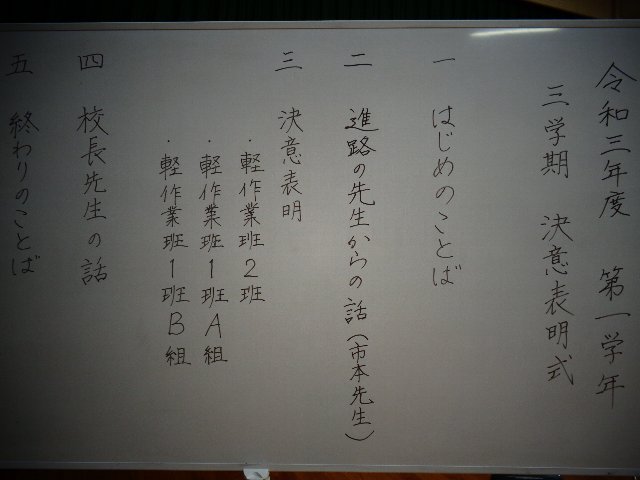 令和三年度 第一学年
三学期 決意表明式
一 はじめのことば
二 進路の先生からの話(市本先生)
三 決意表明
・軽作業班2班
・軽作業班1班A組
・軽作業班1班B組
四 校長先生の話
五 終わりのことば